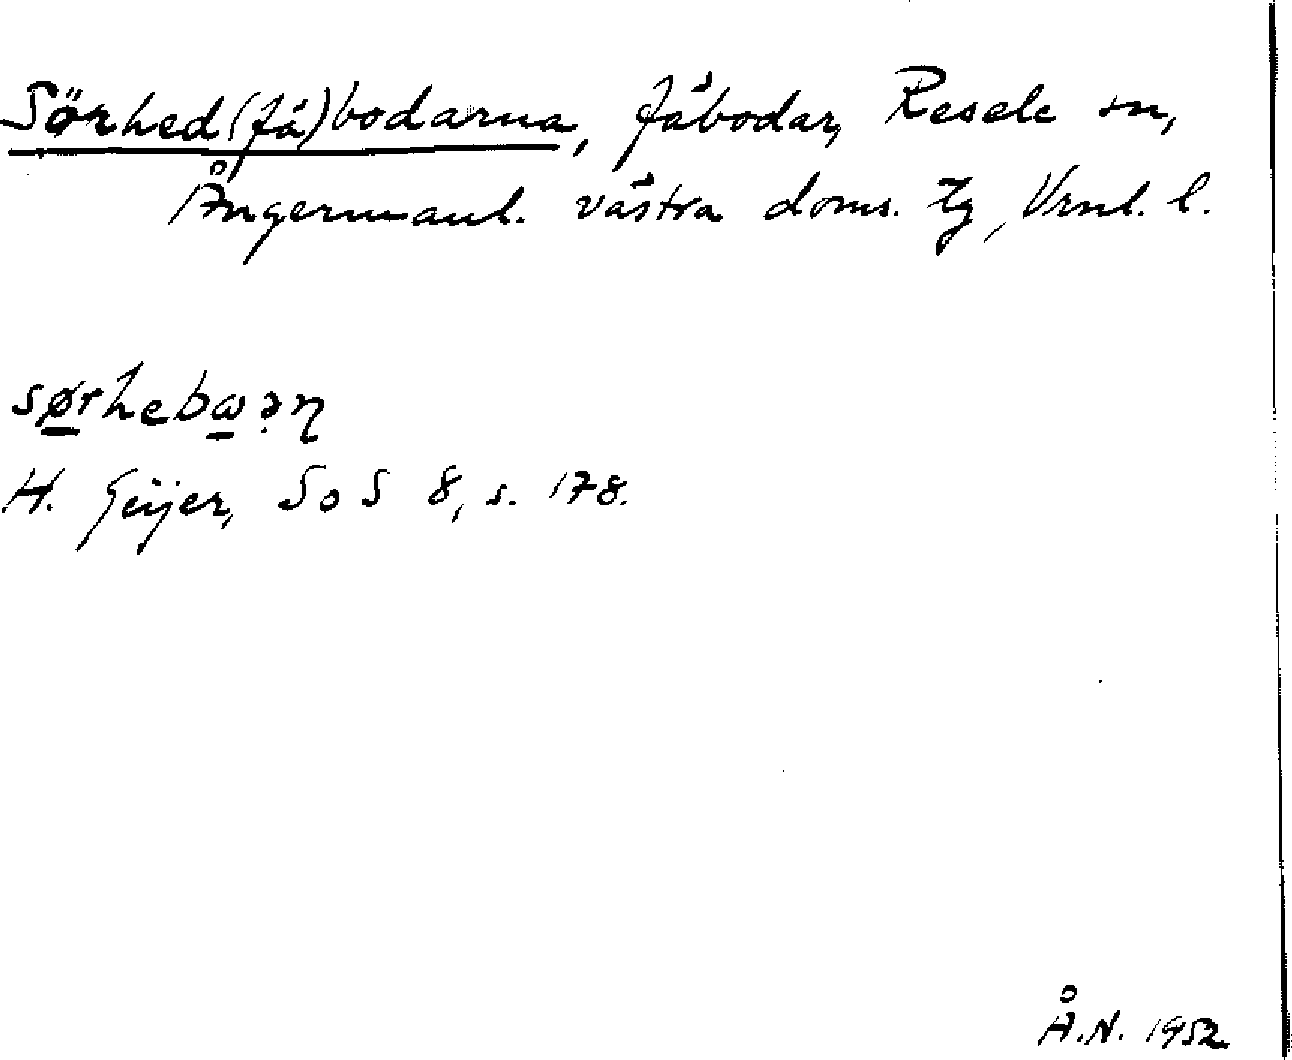 Sörhed(fä)bodarna, fäbodar, Resele sn,
Ångermanl. västra doms. tg, Vrnl. l.
sørhebωən
H. Geijer, SoS 8, s. 178.
Å.N. 1952